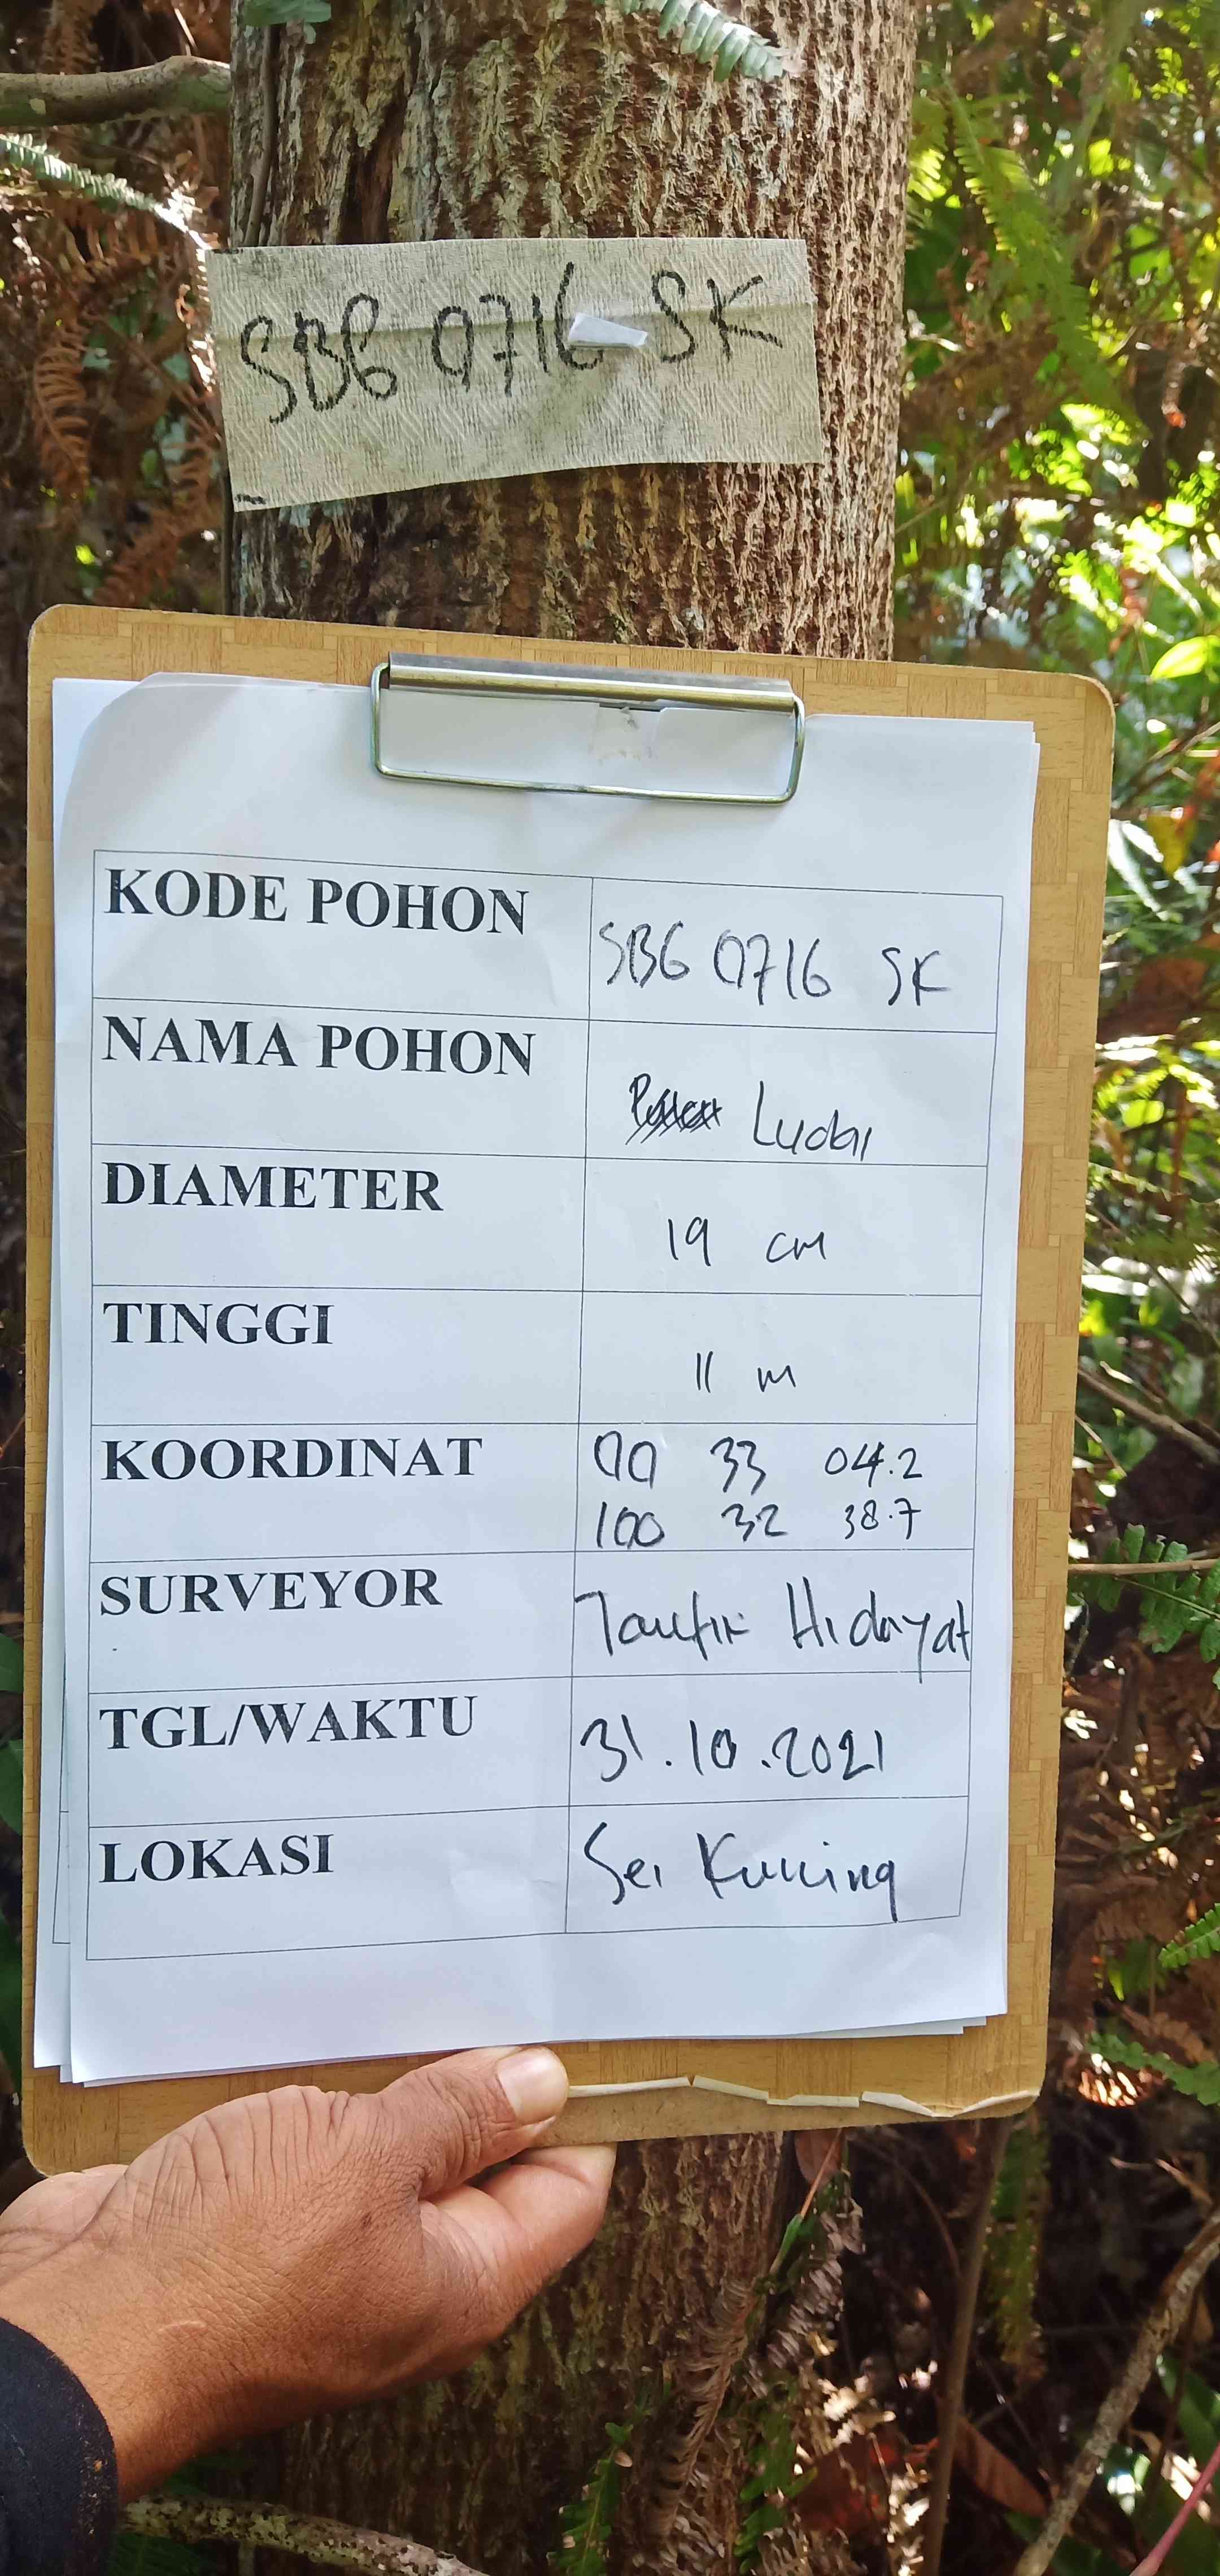 SBG 0716 SK
KODE POHON
SBG 0716 SK
NAMA POHON
Luobi
DIAMETER
19 cm
TINGGI
11 m
KOORDINAT
00 33 04.2
100 32 38.7
SURVEYOR
Taufik Hidayat
TGL/WAKTU
31.10.2021
LOKASI
Sei Kuning